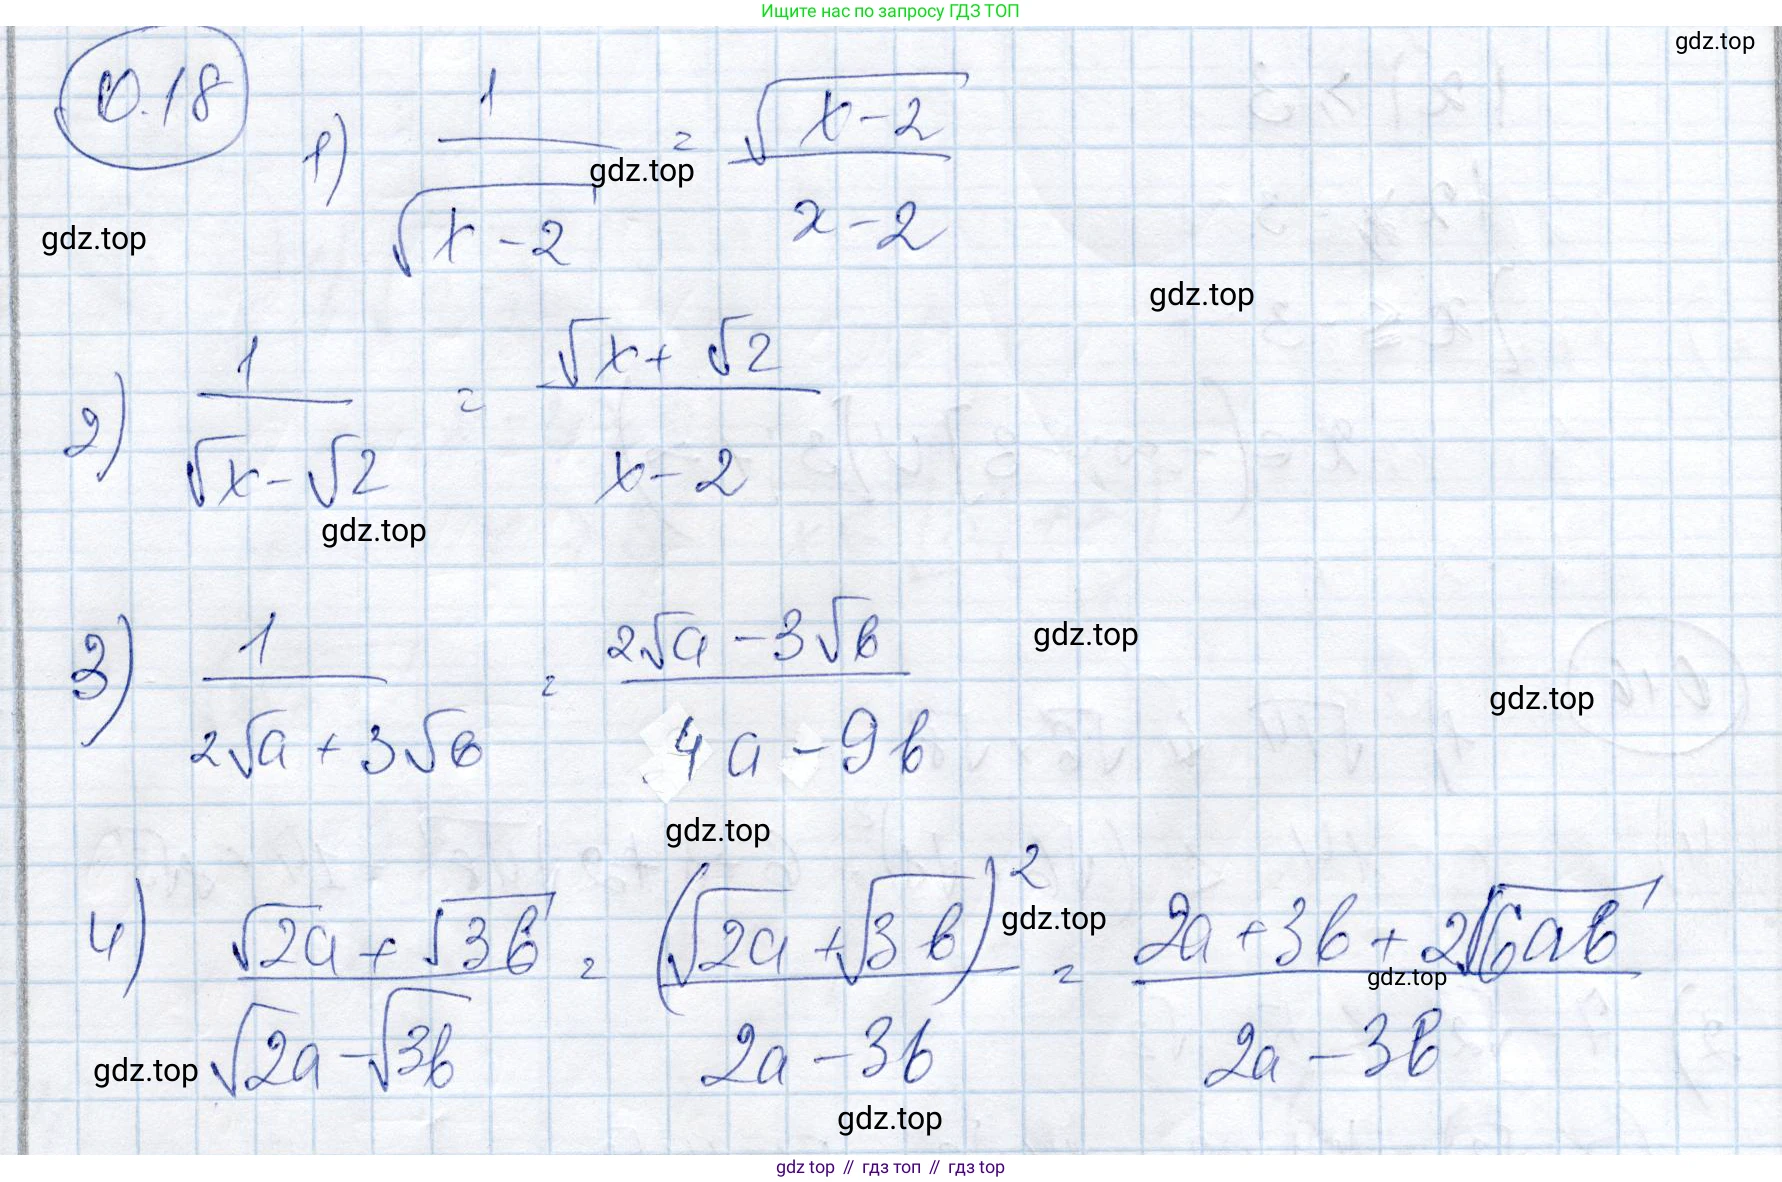 Ищите нас по запросу ГДЗ ТОП
gdz.top
0.18
1) 1/√(x-2) = √(x-2)/(x-2)
gdz.top
gdz.top
gdz.top
2) 1/(√x-√2) = (√x+√2)/(x-2)
gdz.top
3) 1/(2√a+3√b) = (2√a-3√b)/(4a-9b)
gdz.top
gdz.top
gdz.top
4) (√2a+√3b)/(√2a-√3b) = (√2a+√3b)²/(2a-3b) = (2a+3b+2√6ab)/(2a-3b)
gdz.top
gdz.top
gdz.top
gdz.top
gdz top // гдз топ // gdz top